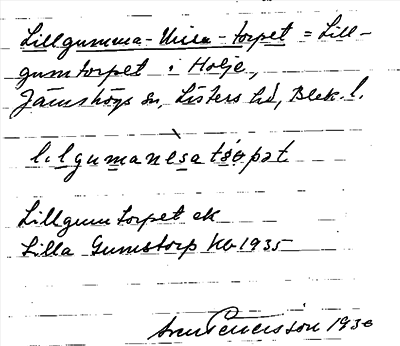 Lillgumma-Nisa-torpet = Lill-
gumtorpet i Holje,
Jämshögs sn, Listers hd, Blek. l.
l.lgumanɩsatɷpət
Lillgumtorpet ek
Lilla Gumstorp Kb 1935
Sven Benson 1936